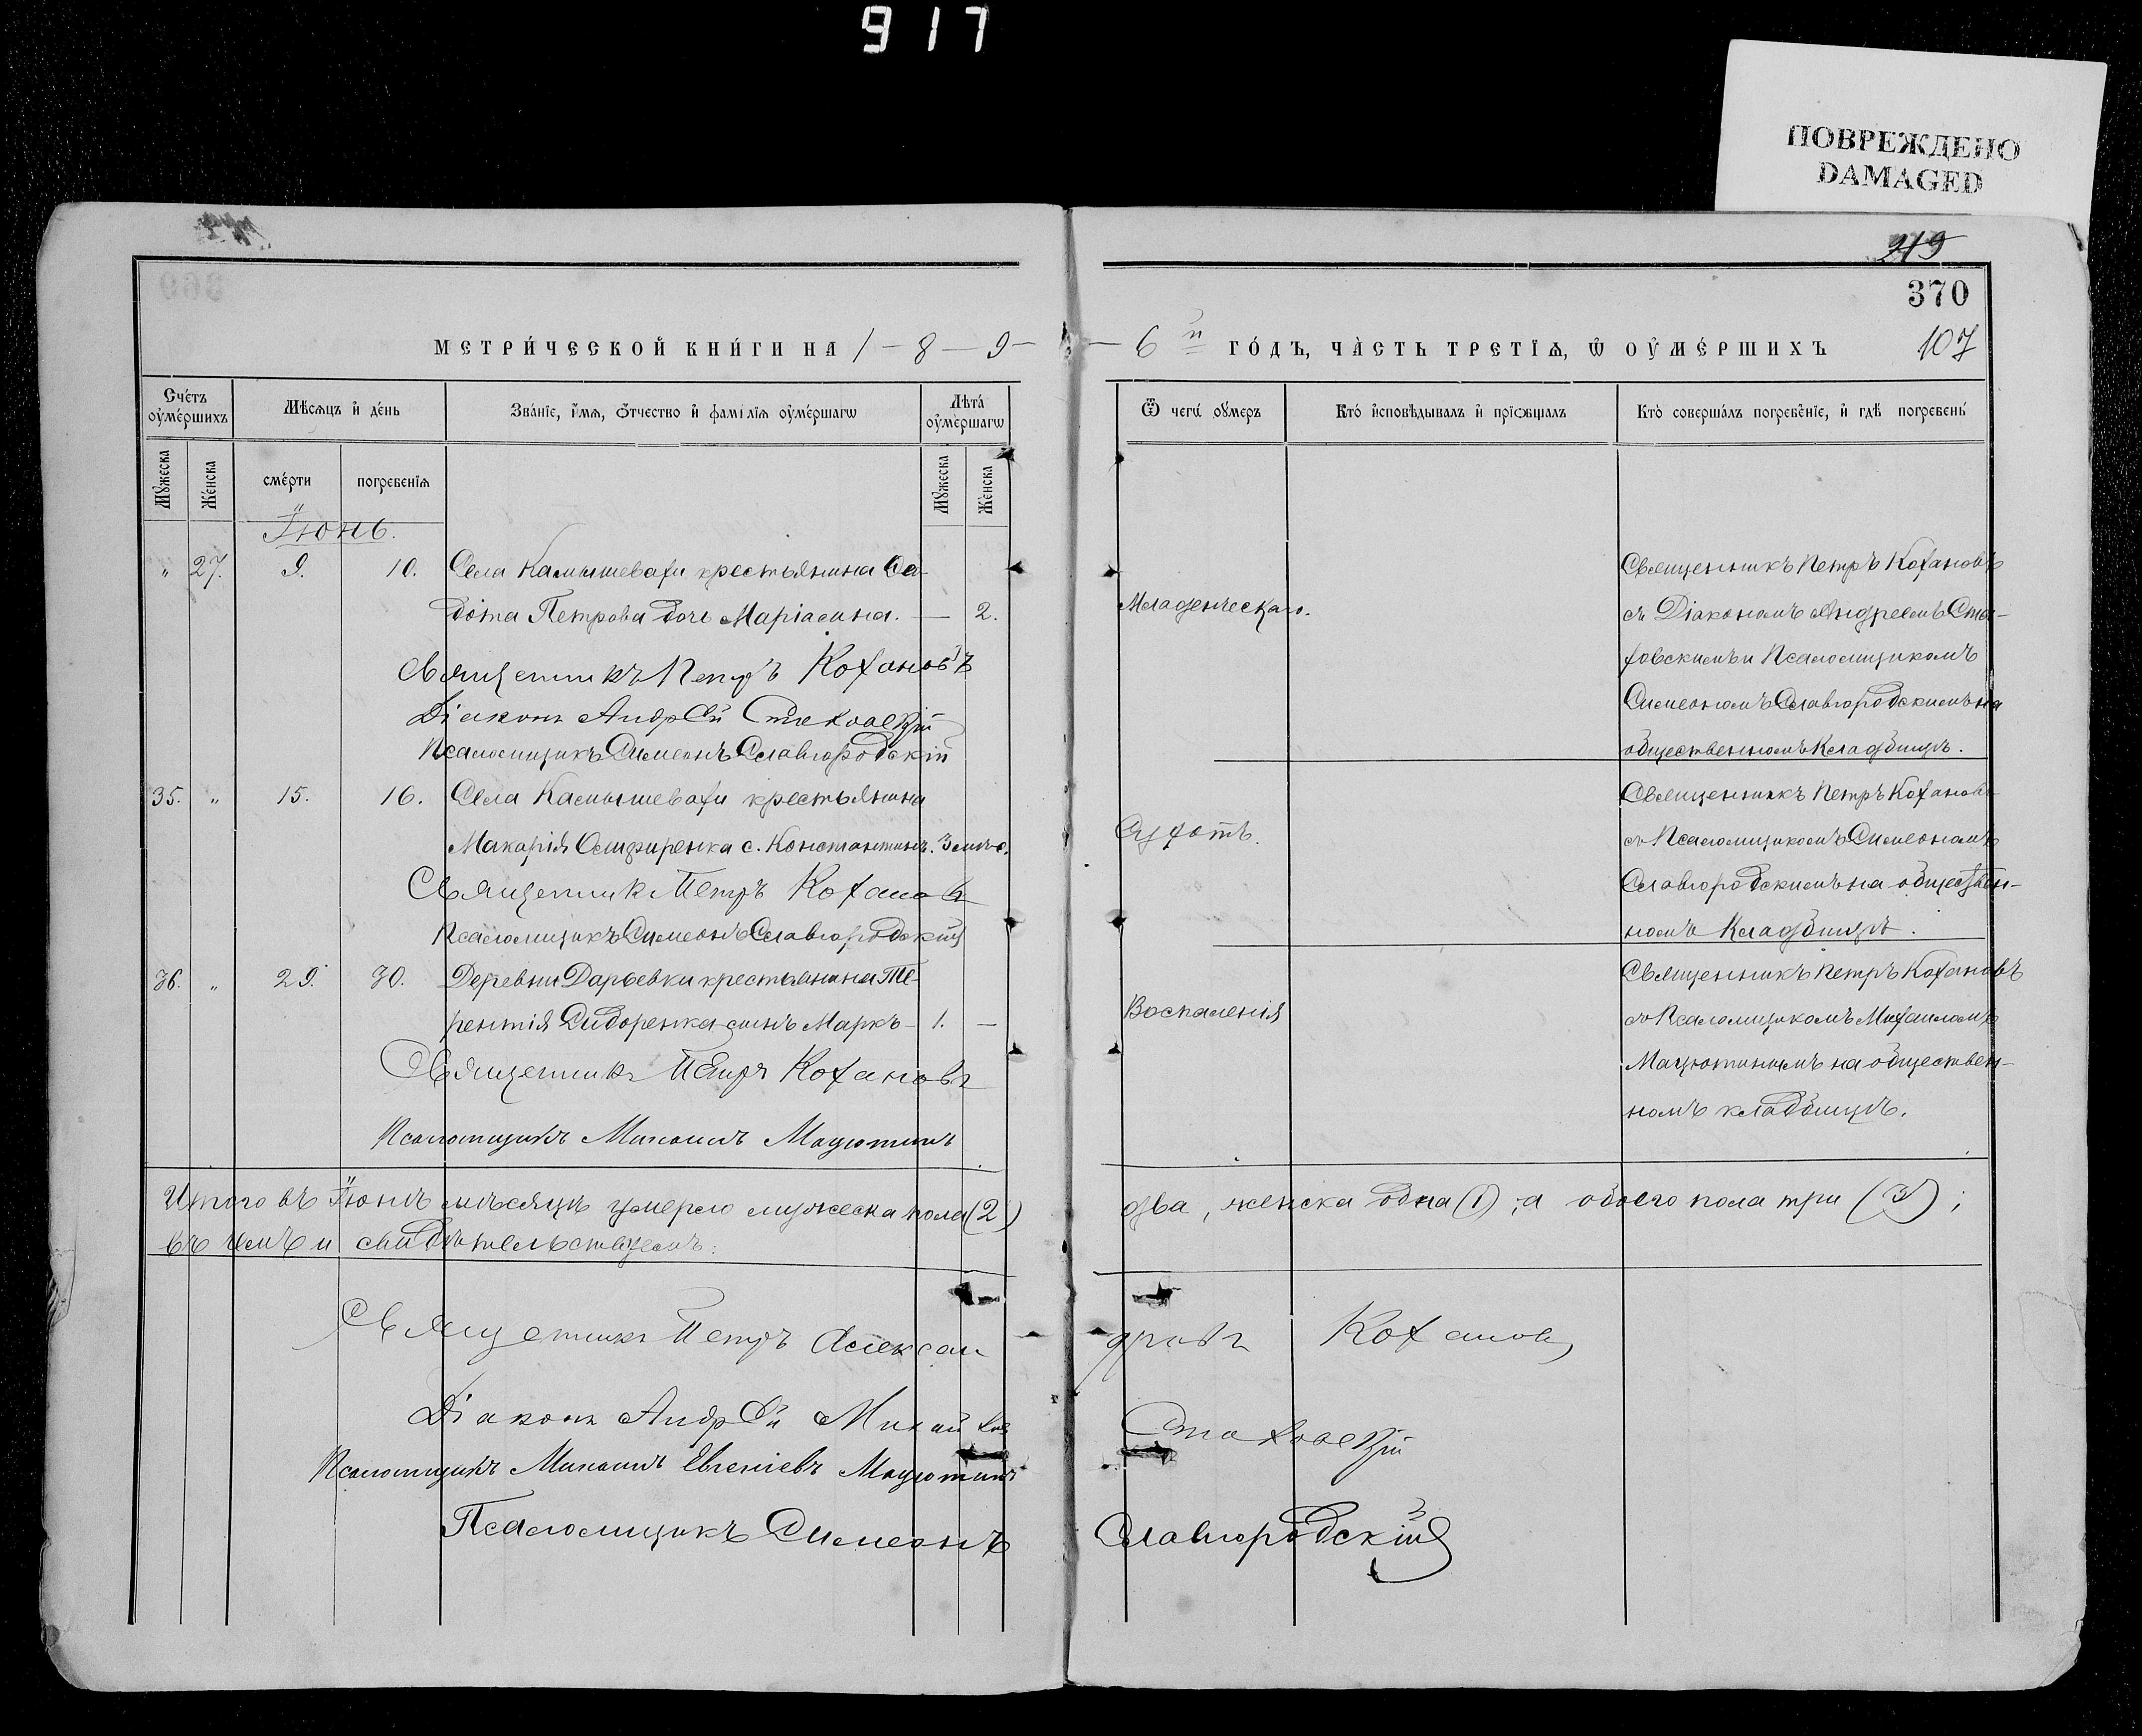 917
ПОВРЕЖДЕНО
DAMAGED
219
370
МЕТРИ́ЧЕСКОЙ КНИ́ГИ НА 1-8-9-
-6й ГО́ДЪ, ЧА̀СТЬ ТРЕТЇѦ, Ѡ ОУ҆МЕ́РШИХЪ
107
Сче́тъ оу҆ме́ршихъ
Мѣсѧцъ и҆ де́нь
Зва́нїе, и҆́мѧ, ѻ҆́тчество и҆ фамі́лїѧ оу҆ме́ршагѡ
Лѣта̀ оу҆ме́ршагѡ
Ѿ чегѡ̀ оу҆́меръ
Кто̀ и҆сповѣ́дывалъ и҆ прїѻбща́лъ
Кто̀ соверша́лъ погребе́нїе, и҆ гдѣ̀ погребены̀
Мꙋ́жеска
Же́нска
сме́рти
погребе́нїѧ
Мꙋ́жеска
Же́нска
Іюнь.
" 27. 9. 10. Села Камышевахи крестьянина Ѳе-
дота Петрова дочь Маріамна. — 2.
Младенческаго.
Священникъ Петръ Кохановъ
съ Діакономъ Андреемъ Ста-
ховскимъ и Псаломщикомъ
Симеономъ Славгородскимъ на
общественномъ кладбищѣ.
Священникъ Петръ Кохановъ
Діаконъ Андрей Стаховскій
Псаломщикъ Симеонъ Славгородскій
35. " 15. 16. Села Камышевахи крестьянина
Макарія с. Константинъ. 3 мѣс.
Сухотъ.
Священникъ Петръ Кохановъ
съ Псаломщикомъ Симеономъ
Славгородскимъ на обществен-
номъ кладбищѣ.
Священникъ Петръ Кохановъ
Псаломщикъ Симеонъ Славгородскій
36. " 29. 30. Деревни Дарьевки крестьянина Те-
рентія Сидоренка сынъ Маркъ - 1. —
Воспаленія
Священникъ Петръ Кохановъ
съ Псаломщикомъ Михаиломъ
Мацютинымъ на обществен-
номъ кладбищѣ.
Священникъ Петръ Кохановъ
Псаломщикъ Михаилъ Мацютинъ
Итого въ Іюнѣ мѣсяцѣ умерло мужеска пола (2) два, женска одна (1), а обоего пола три (3);
въ чемъ и свидѣтельствуемъ:
Священникъ Петръ Александровъ Кохановъ
Діаконъ Андрей Михайлов Стаховскій
Псаломщикъ Михаилъ Евгеніевъ Мацютинъ
Псаломщикъ Симеонъ Славгородскій